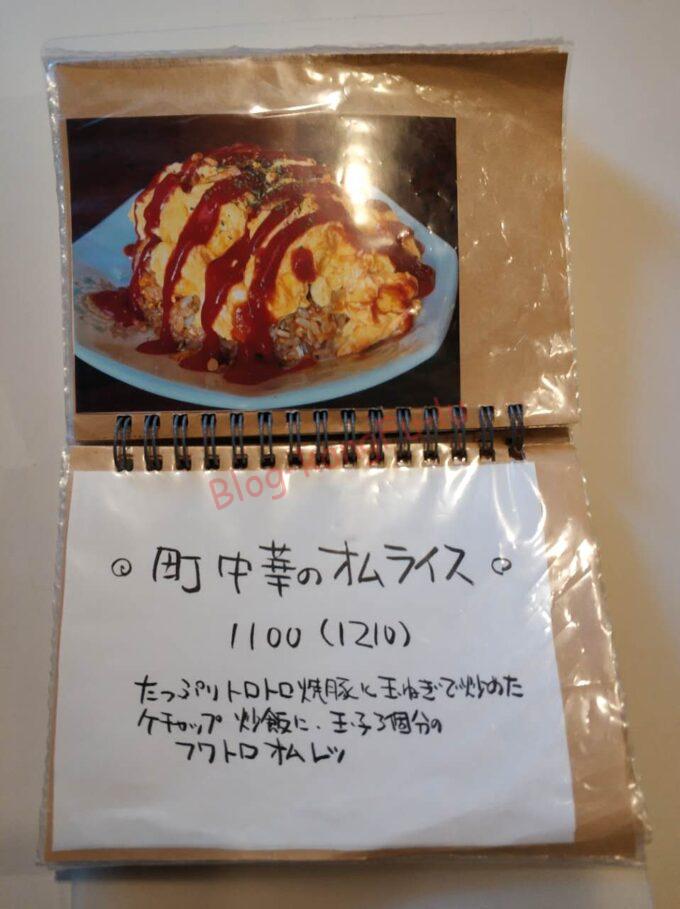 Blog-
町中華のオムライス
1100(1210)
たっぷりトロトロ焼豚と玉ねぎで炒めた
ケチャップ炒飯に、玉子3個分の
フワトロオムレツ